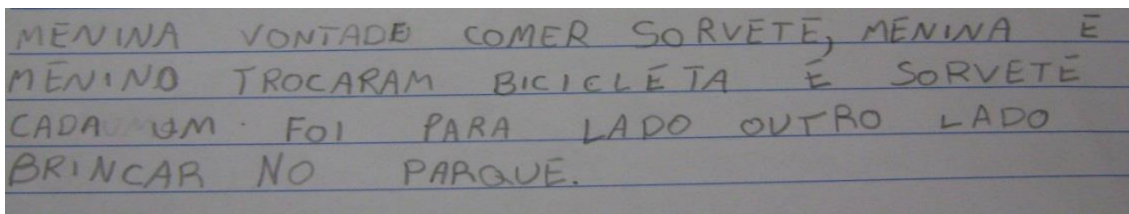 MENINA VONTADE COMER SORVETE, MENINA E
MENINO TROCARAM BICICLETA E SORVETE
CADA UM FOI PARA LADO OUTRO LADO
BRINCAR NO PARQUE.